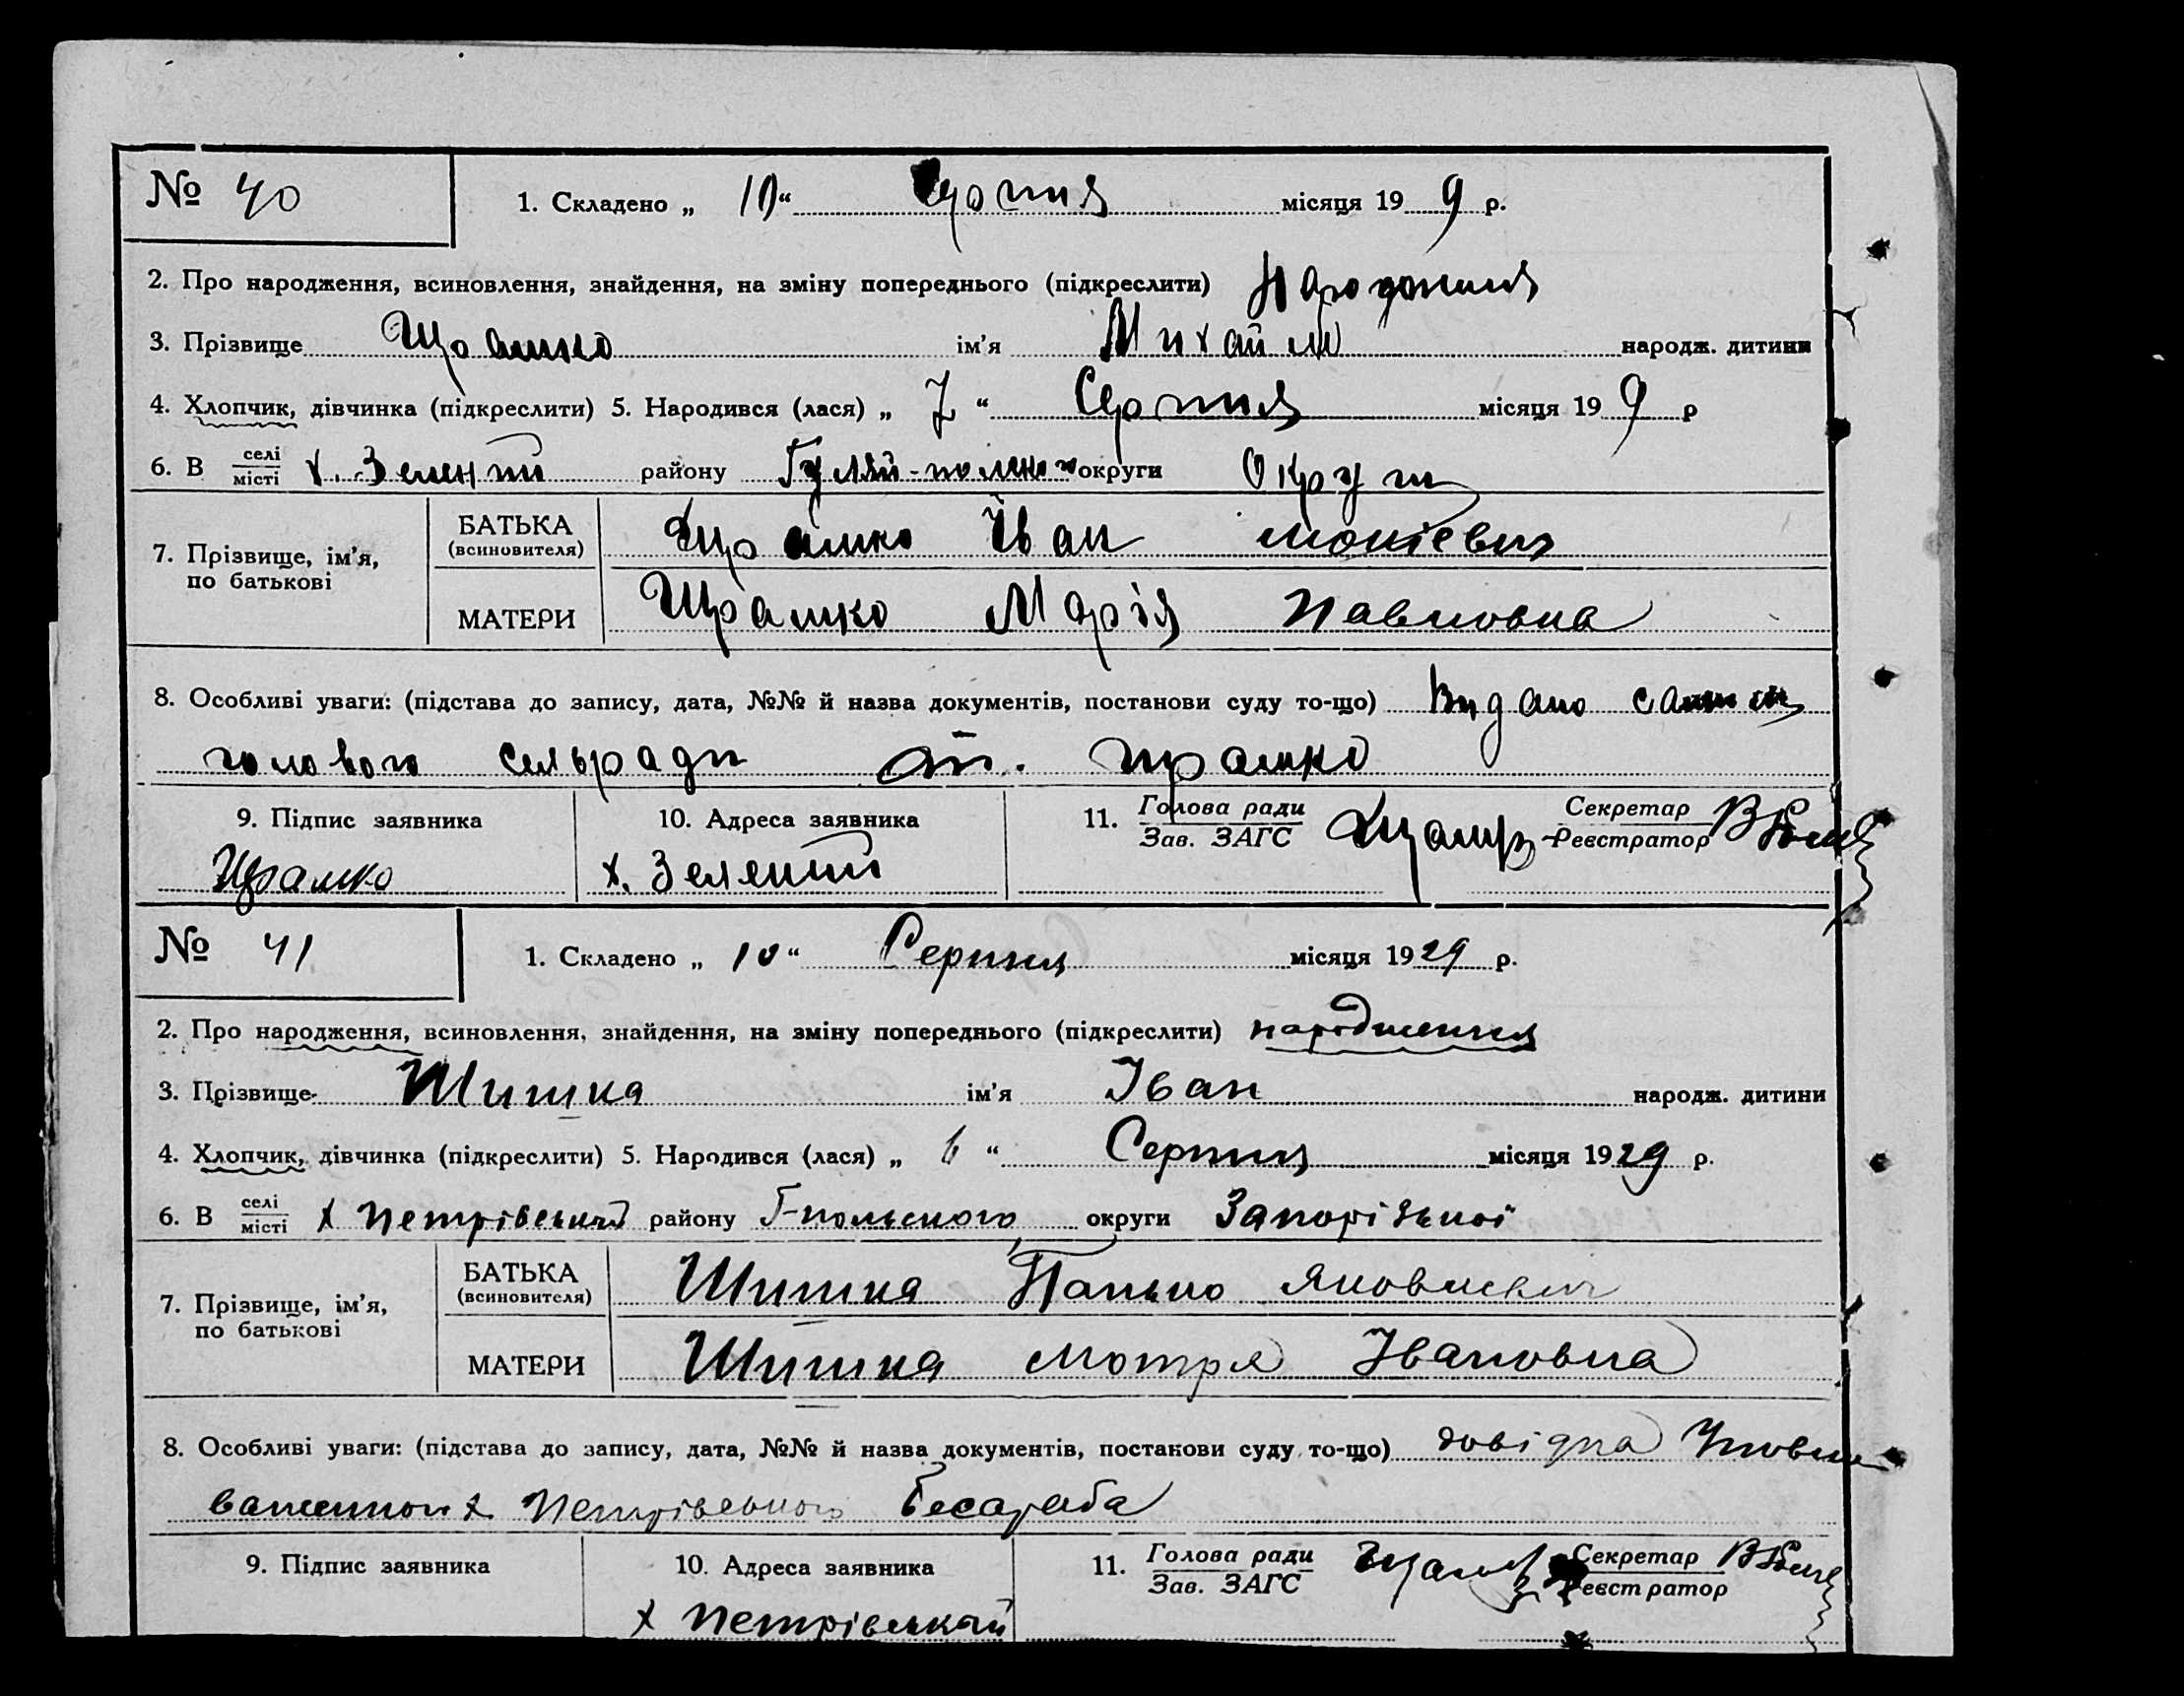 № 40 1. Складено „ 10 “ Серпня місяця 19 9 р.
2. Про народження, всиновлення, знайдення, на зміну попереднього (підкреслити) Народження
3. Прізвище Шрамко ім’я Михайло народж. дитини
4. Хлопчик, дівчинка (підкреслити) 5. Народився (лася) „ 7 “ Серпня місяця 19 9 р
6. В селі місті х. Зелений району Гуляй-польского округи Округи
7. Прізвище, ім’я, по батькові
БАТЬКА (всиновителя) Шрамко Іван
МАТЕРИ Шрамко Марія Павловна
8. Особливі уваги: (підстава до запису, дата, №№ й назва документів, постанови суду то-що) Видано самим
головою сельради Шрамко
9. Підпис заявника 10. Адреса заявника 11. Голова ради Зав. ЗАГС Секретар Реєстратор
Шрамко х. Зелений
№ 41 1. Складено „ 10 “ Серпня місяця 1929 р.
2. Про народження, всиновлення, знайдення, на зміну попереднього (підкреслити) народження
3. Прізвище Шишка ім’я Іван народж. дитини
4. Хлопчик, дівчинка (підкреслити) 5. Народився (лася) „ 6 “ Серпня місяця 1929 р.
6. В селі місті х Петрівський району Г-польского округи Запорізької
7. Прізвище, ім’я, по батькові
БАТЬКА (всиновителя) Шишка Панько Яковлевич
МАТЕРИ Шишка Мотря Івановна
8. Особливі уваги: (підстава до запису, дата, №№ й назва документів, постанови суду то-що) довідка Уповно
важенного х Петрівського Бесараба
9. Підпис заявника 10. Адреса заявника 11. Голова ради Зав. ЗАГС Секретар Реєстратор
х Петрівський